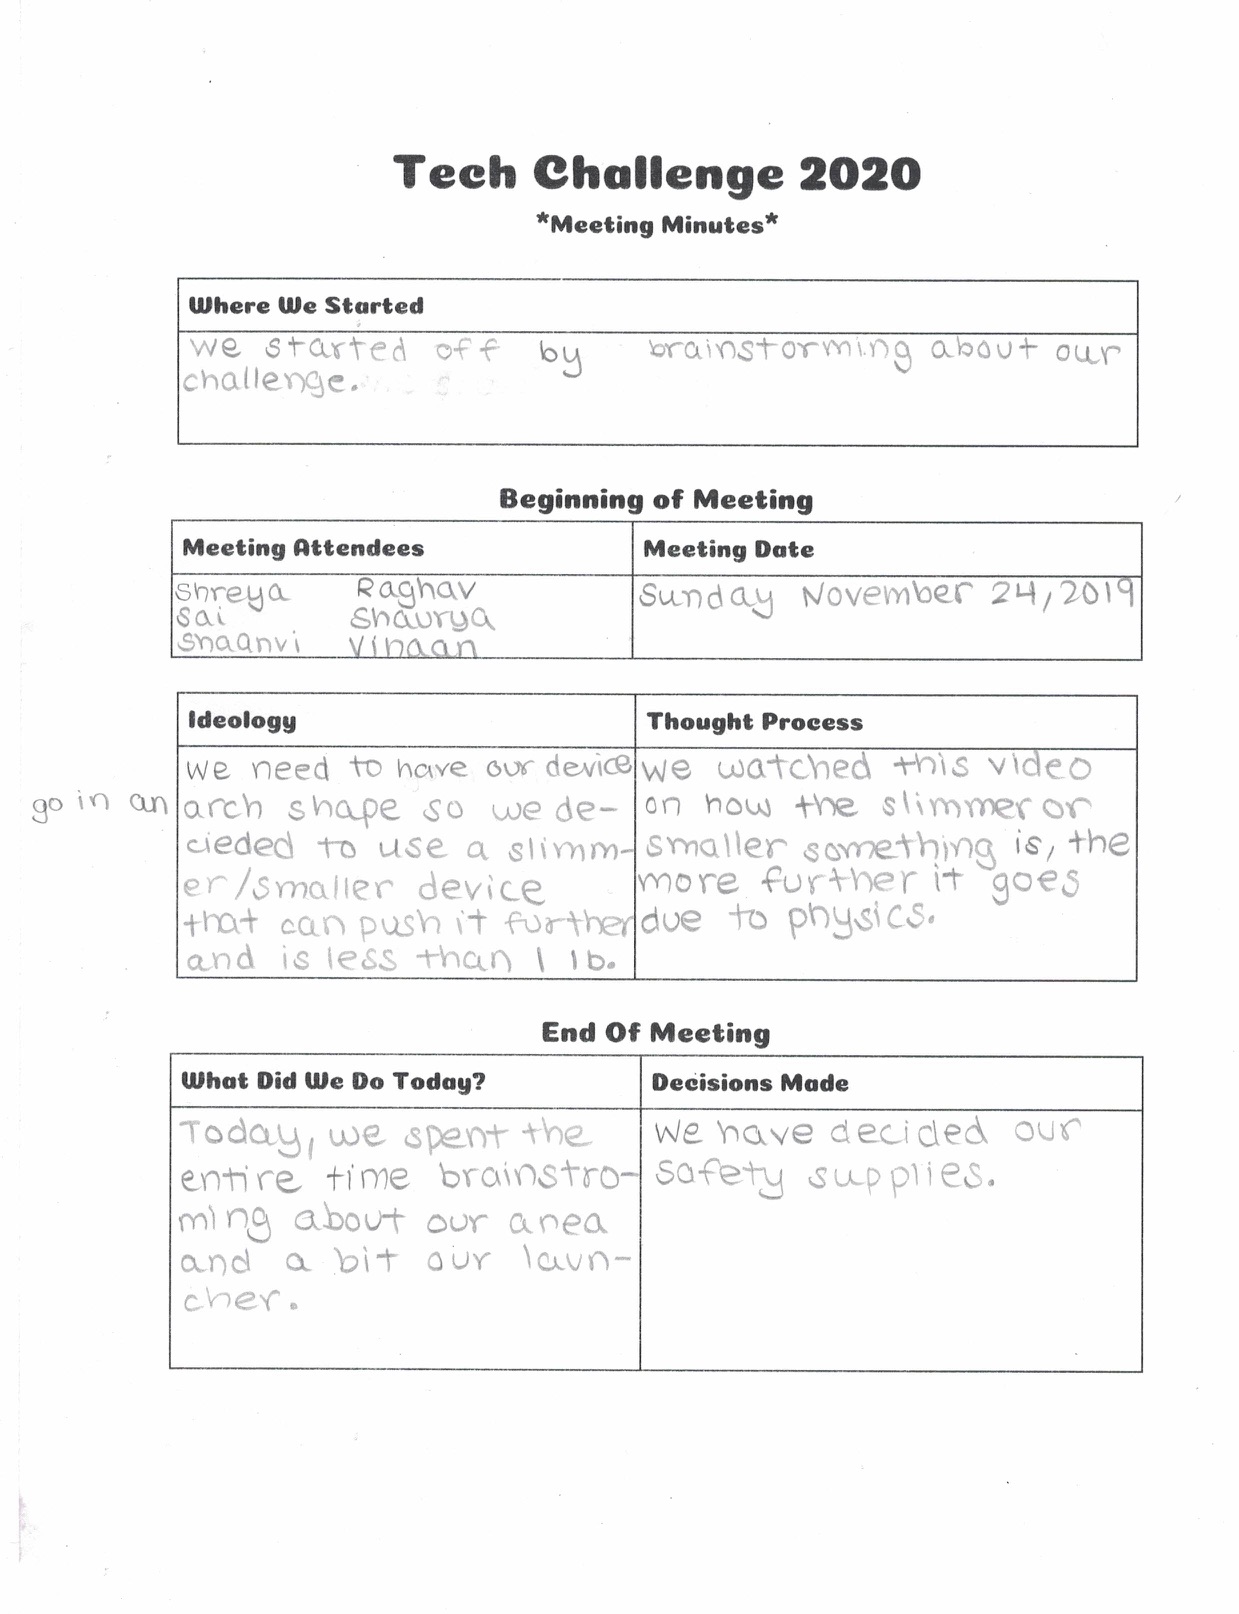 Tech Challenge 2020
*Meeting Minutes*
Where We Started
we started off by brainstorming about our
challenge.
Beginning of Meeting
Meeting Attendees
Shreya Raghav
Sai Shaurya
Shaanvi Vihaan
Meeting Date
Sunday November 24, 2019
Ideology
we need to have our device
go in an arch shape so we de-
cieded to use a slimm-
er/smaller device
that can push it further
and is less than 1 lb.
Thought Process
we watched this video
on how the slimmer or
smaller something is, the
more further it goes
due to physics.
End Of Meeting
What Did We Do Today?
Today, we spent the
entire time brainstro-
ming about our area
and a bit our laun-
cher.
Decisions Made
We have decided our
safety supplies.